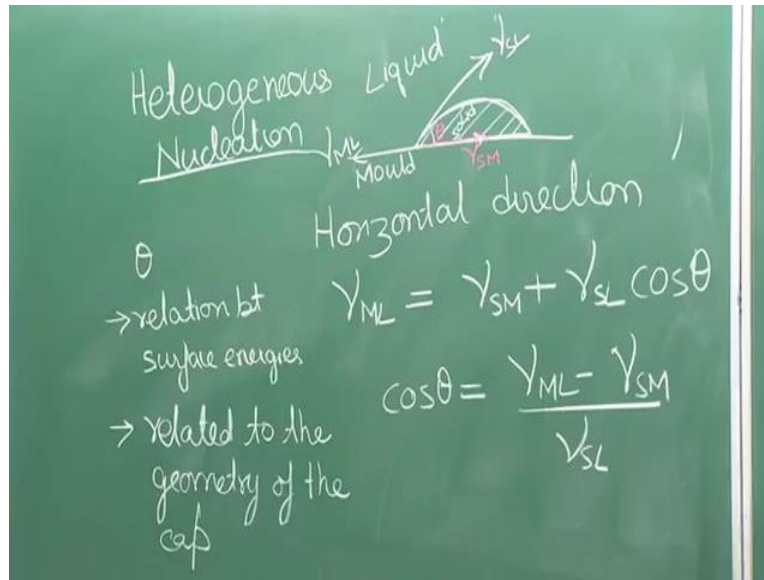 Heterogeneous Liquid γSL
Nucleation γML θ solid γSM
Mould
Horizontal direction
θ
→ relation bt
surface energies
→ related to the
geometry of the
cap
γML = γSM + γSL cosθ
cosθ = γML - γSM
γSL